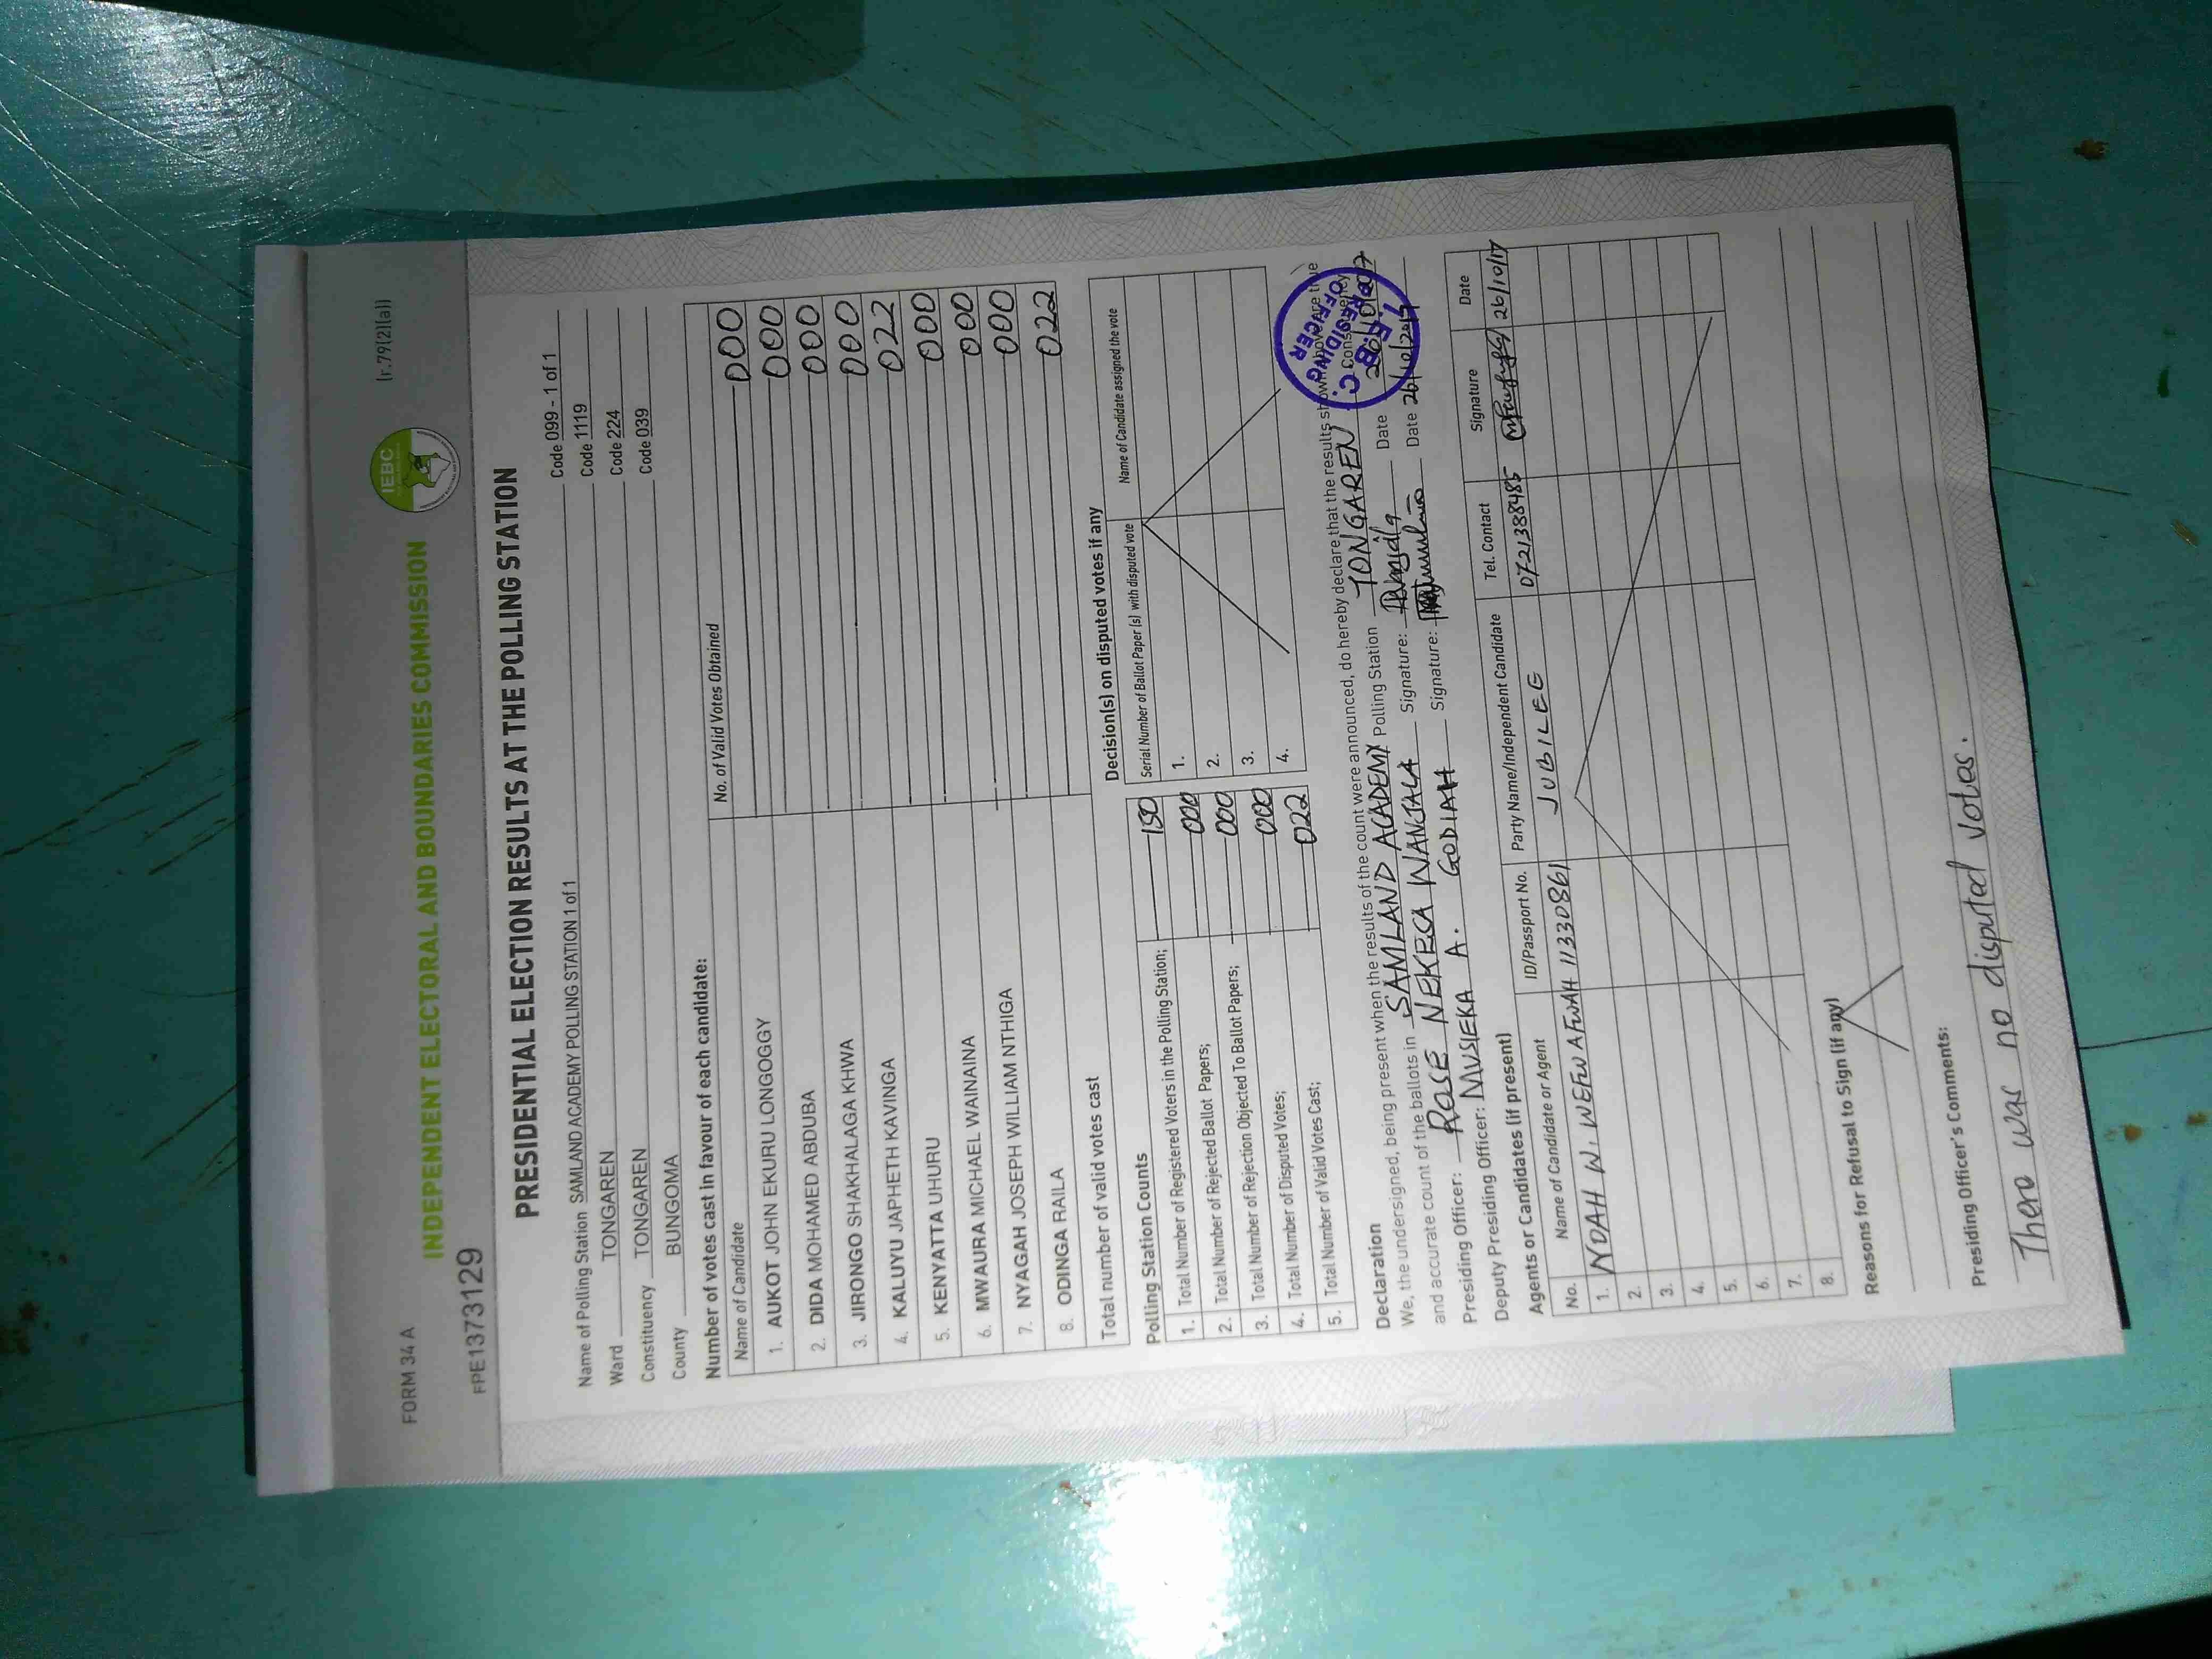 FORM 34 A
(r.79(2)(a))
IEBC
INDEPENDENT ELECTORAL AND BOUNDARIES COMMISSION
FPE1373129
PRESIDENTIAL ELECTION RESULTS AT THE POLLING STATION
Name of Polling Station SAMLAND ACADEMY POLLING STATION 1 of 1 Code 099 - 1 of 1
Ward TONGAREN Code 1119
Constituency TONGAREN Code 224
County BUNGOMA Code 039
Number of votes cast in favour of each candidate:
Name of Candidate No. of Valid Votes Obtained
1. AUKOT JOHN EKURU LONGOGGY 000
2. DIDA MOHAMED ABDUBA 000
3. JIRONGO SHAKHALAGA KHWA 000
4. KALUYU JAPHETH KAVINGA 000
5. KENYATTA UHURU 022
6. MWAURA MICHAEL WAINAINA 000
7. NYAGAH JOSEPH WILLIAM NTHIGA 000
8. ODINGA RAILA 000
Total number of valid votes cast 022
Polling Station Counts
1. Total Number of Registered Voters in the Polling Station; 150
2. Total Number of Rejected Ballot Papers; 000
3. Total Number of Rejection Objected To Ballot Papers; 000
4. Total Number of Disputed Votes; 000
5. Total Number of Valid Votes Cast; 022
Decision(s) on disputed votes if any
Serial Number of Ballot Paper (s) with disputed vote Name of Candidate assigned the vote
1.
2.
3.
4.
Declaration
We, the undersigned, being present when the results of the count were announced, do hereby declare that the results shown above are true
and accurate count of the ballots in SAMLAND ACADEMY Polling Station TONGAREN Constituency
Presiding Officer: ROSE NEKESA WANJALA Signature: Date 26/10/2017
Deputy Presiding Officer: MUSIEKA A. GODIAH Signature: Date 26/10/2017
I.E.B.C.
PRESIDING
OFFICER
Agents or Candidates (if present)
No. Name of Candidate or Agent ID/Passport No. Party Name/Independent Candidate Tel. Contact Signature Date
1. NOAH W. WEFWAFWAH 11330861 JUBILEE 0721388485 26/10/17
2.
3.
4.
5.
6.
7.
8.
Reasons for Refusal to Sign (if any)
Presiding Officer's Comments:
There was no disputed votes.